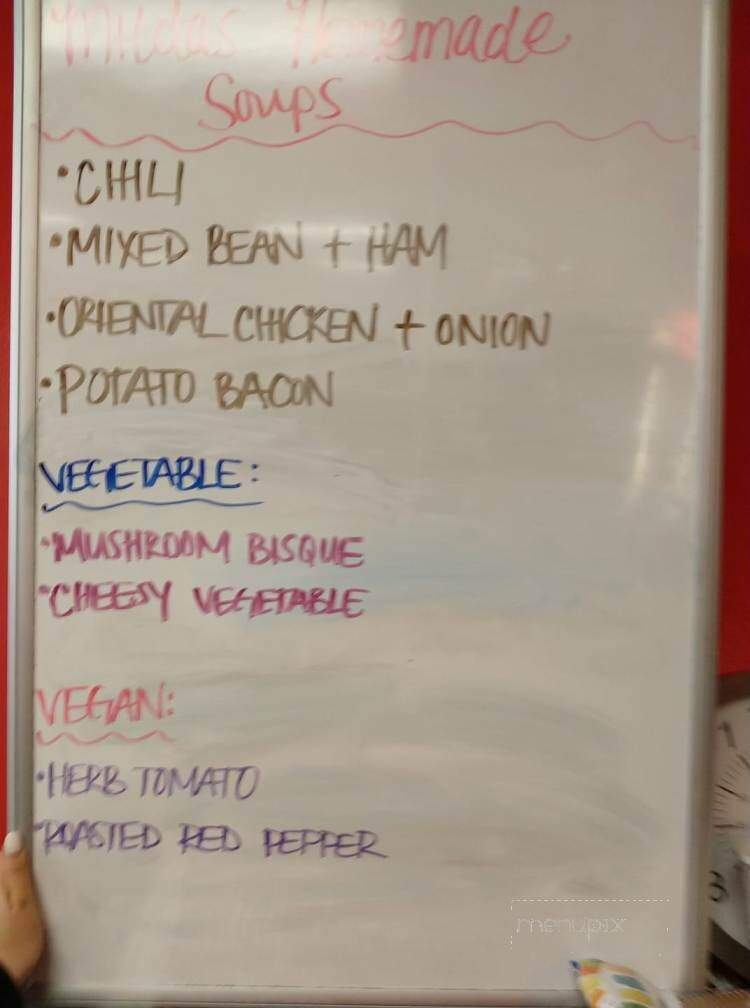 Mildas Homemade
Soups
•CHILI
•MIXED BEAN + HAM
•ORIENTAL CHICKEN + ONION
•POTATO BACON
VEGETABLE:
•MUSHROOM BISQUE
•CHEESY VEGETABLE
VEGAN:
•HERB TOMATO
•ROASTED RED PEPPER
menupix
1
3